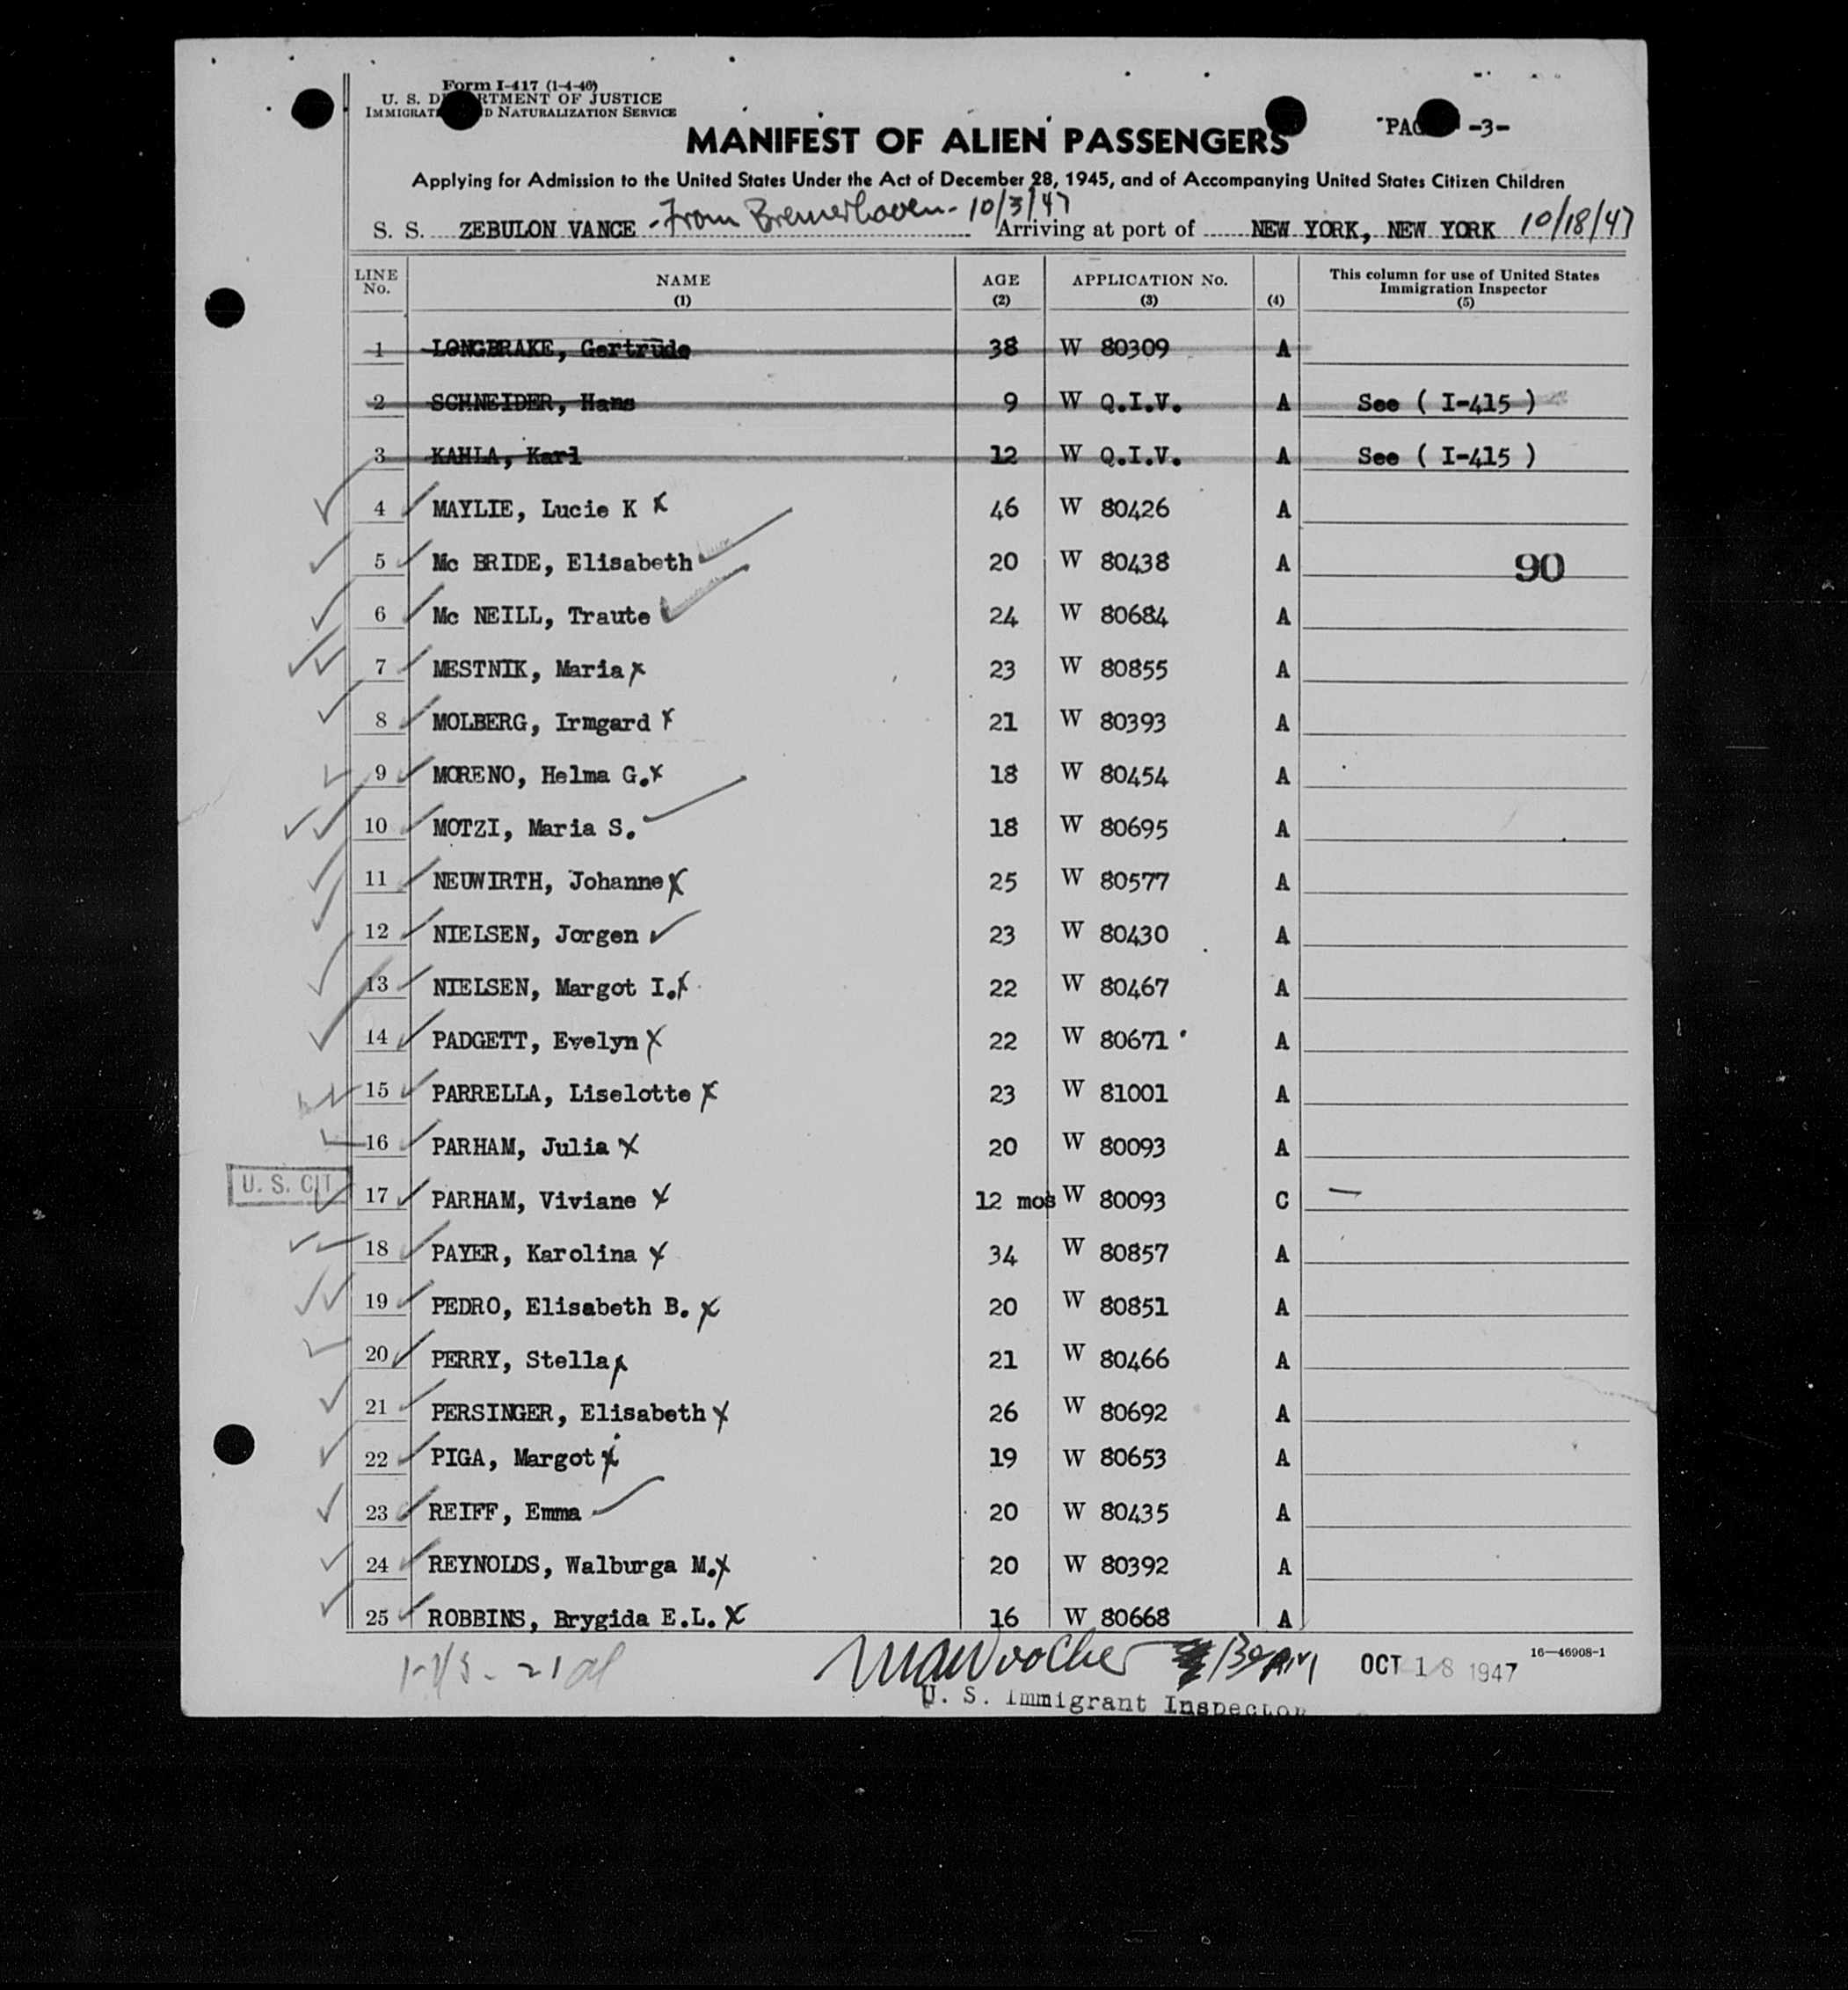 Form I-417 (1-4-46)
U. S. D RTMENT OF JUSTICE
IMMIGRAT D NATURALIZATION SERVICE
MANIFEST OF ALIEN PASSENGERS
PAG -3-
Applying for Admission to the United States Under the Act of December 28, 1945, and of Accompanying United States Citizen Children
S. S. ZEBULON VANCE - From Bremerhaven - 10/3/47 Arriving at port of NEW YORK, NEW YORK 10/18/47
LINE No. NAME (1) AGE (2) APPLICATION No. (3) (4) This column for use of United States Immigration Inspector (5)
1 LONGBRAKE, Gertrude 38 W 80309 A
2 SCHNEIDER, Hans 9 W Q.I.V. A See ( I-415 )
3 KAHLA, Karl 12 W Q.I.V. A See ( I-415 )
4 MAYLIE, Lucie K x 46 W 80426 A
5 Mc BRIDE, Elisabeth 20 W 80438 A 90
6 Mc NEILL, Traute 24 W 80684 A
7 MESTNIK, Maria x 23 W 80855 A
8 MOLBERG, Irmgard x 21 W 80393 A
9 MORENO, Helma G. x 18 W 80454 A
10 MOTZI, Maria S. 18 W 80695 A
11 NEUWIRTH, Johanne x 25 W 80577 A
12 NIELSEN, Jorgen 23 W 80430 A
13 NIELSEN, Margot I. x 22 W 80467 A
14 PADGETT, Evelyn x 22 W 80671 A
15 PARRELLA, Liselotte x 23 W 81001 A
16 PARHAM, Julia x 20 W 80093 A
U. S. CIT 17 PARHAM, Viviane x 12 mos W 80093 C —
18 PAYER, Karolina x 34 W 80857 A
19 PEDRO, Elisabeth B. x 20 W 80851 A
20 PERRY, Stella x 21 W 80466 A
21 PERSINGER, Elisabeth x 26 W 80692 A
22 PIGA, Margot x 19 W 80653 A
23 REIFF, Emma 20 W 80435 A
24 REYNOLDS, Walburga M. x 20 W 80392 A
25 ROBBINS, Brygida E.L. x 16 W 80668 A
OCT 18 1947 16—46908-1
U. S. Immigrant Inspector